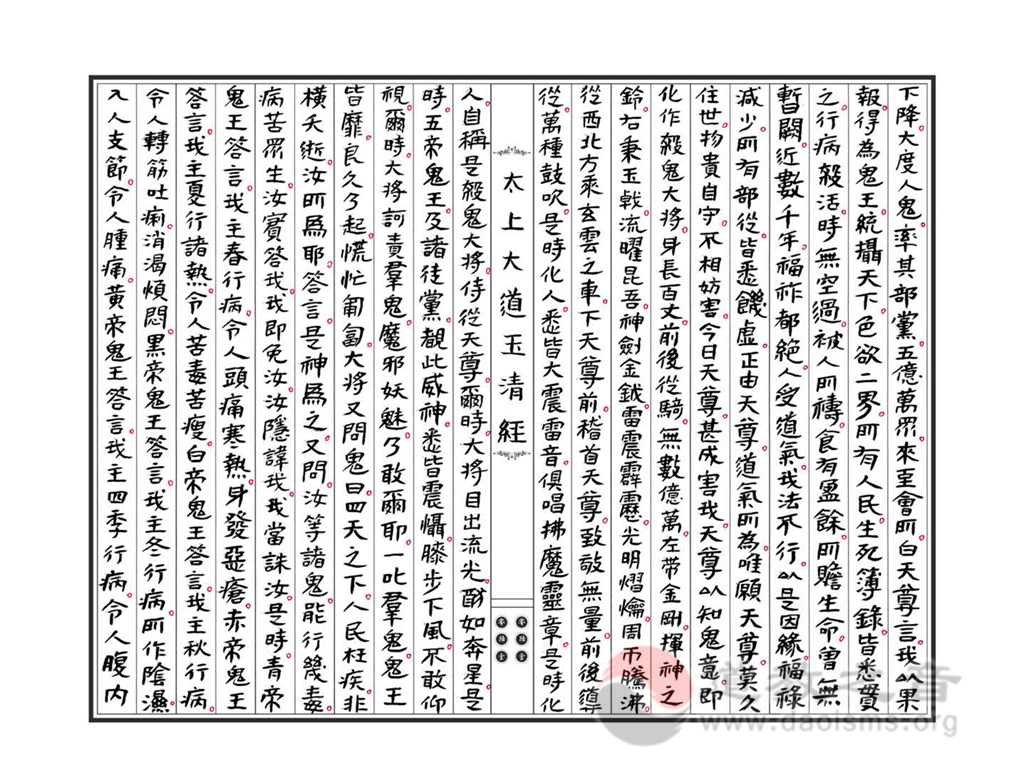 下降大度人鬼率其部黨五億萬眾來至會所白天尊言我以果
報得為鬼王統攝天下色欲二界所有人民生死簿錄皆悉貫
之行病殺活時無空過被人所禱食有盈餘所贍生命曾無
暫闕近數千年福祚都絕人受道氣我法不行以是因緣福祿
減少所有部從皆悉饑虛正由天尊道氣所為唯願天尊莫久
住世物貴自守不相妨害今日天尊甚成害我天尊以知鬼意即
化作殺鬼大將身長百丈前後從騎無數億萬左帶金剛揮神之
鈴右秉玉戟流曜昆吾神劍金鉞雷震霹靂光明熠爚周帀騰沸
從西北方乘玄雲之車下天尊前稽首天尊致敬無量前後導
從萬種鼓吹是時化人悉皆大震雷音俱唱拂魔靈章是時化
太上大道玉清經
人自稱是殺鬼大將侍從天尊爾時大將目出流光酷如奔星是
時五帝鬼王及諸徒黨覩此威神悉皆震懾膝步下風不敢仰
視爾時大將訶責羣鬼魔邪妖魅乃敢爾耶一叱羣鬼鬼王
皆靡良久乃起慌忙匍匐大將又問鬼曰四天之下人民枉疾非
橫夭逝汝所為耶答言是神為之又問汝等諸鬼能行幾毒
病苦眾生汝實答我我即免汝汝隱諱我我當誅汝是時青帝
鬼王答言我主春行病令人頭痛寒熱身發惡瘡赤帝鬼王
答言我主夏行諸熱令人苦毒苦瘦白帝鬼王答言我主秋行病
令人轉筋吐痢消渴煩悶黑帝鬼王答言我主冬行病所作陰濕
入人支節令人腫痛黃帝鬼王答言我主四季行病令人腹內
道教之音
www.daoisms.org